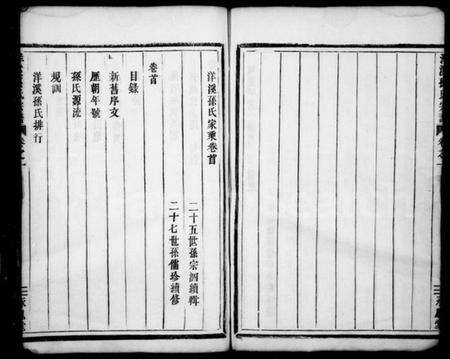 洋溪孫氏家乘卷首
二十五世孫宗泗續輯
二十七世孫儒珍續修
卷首
目錄
新舊序文
歷朝年號
孫氏源流
規訓
洋溪孫氏排行